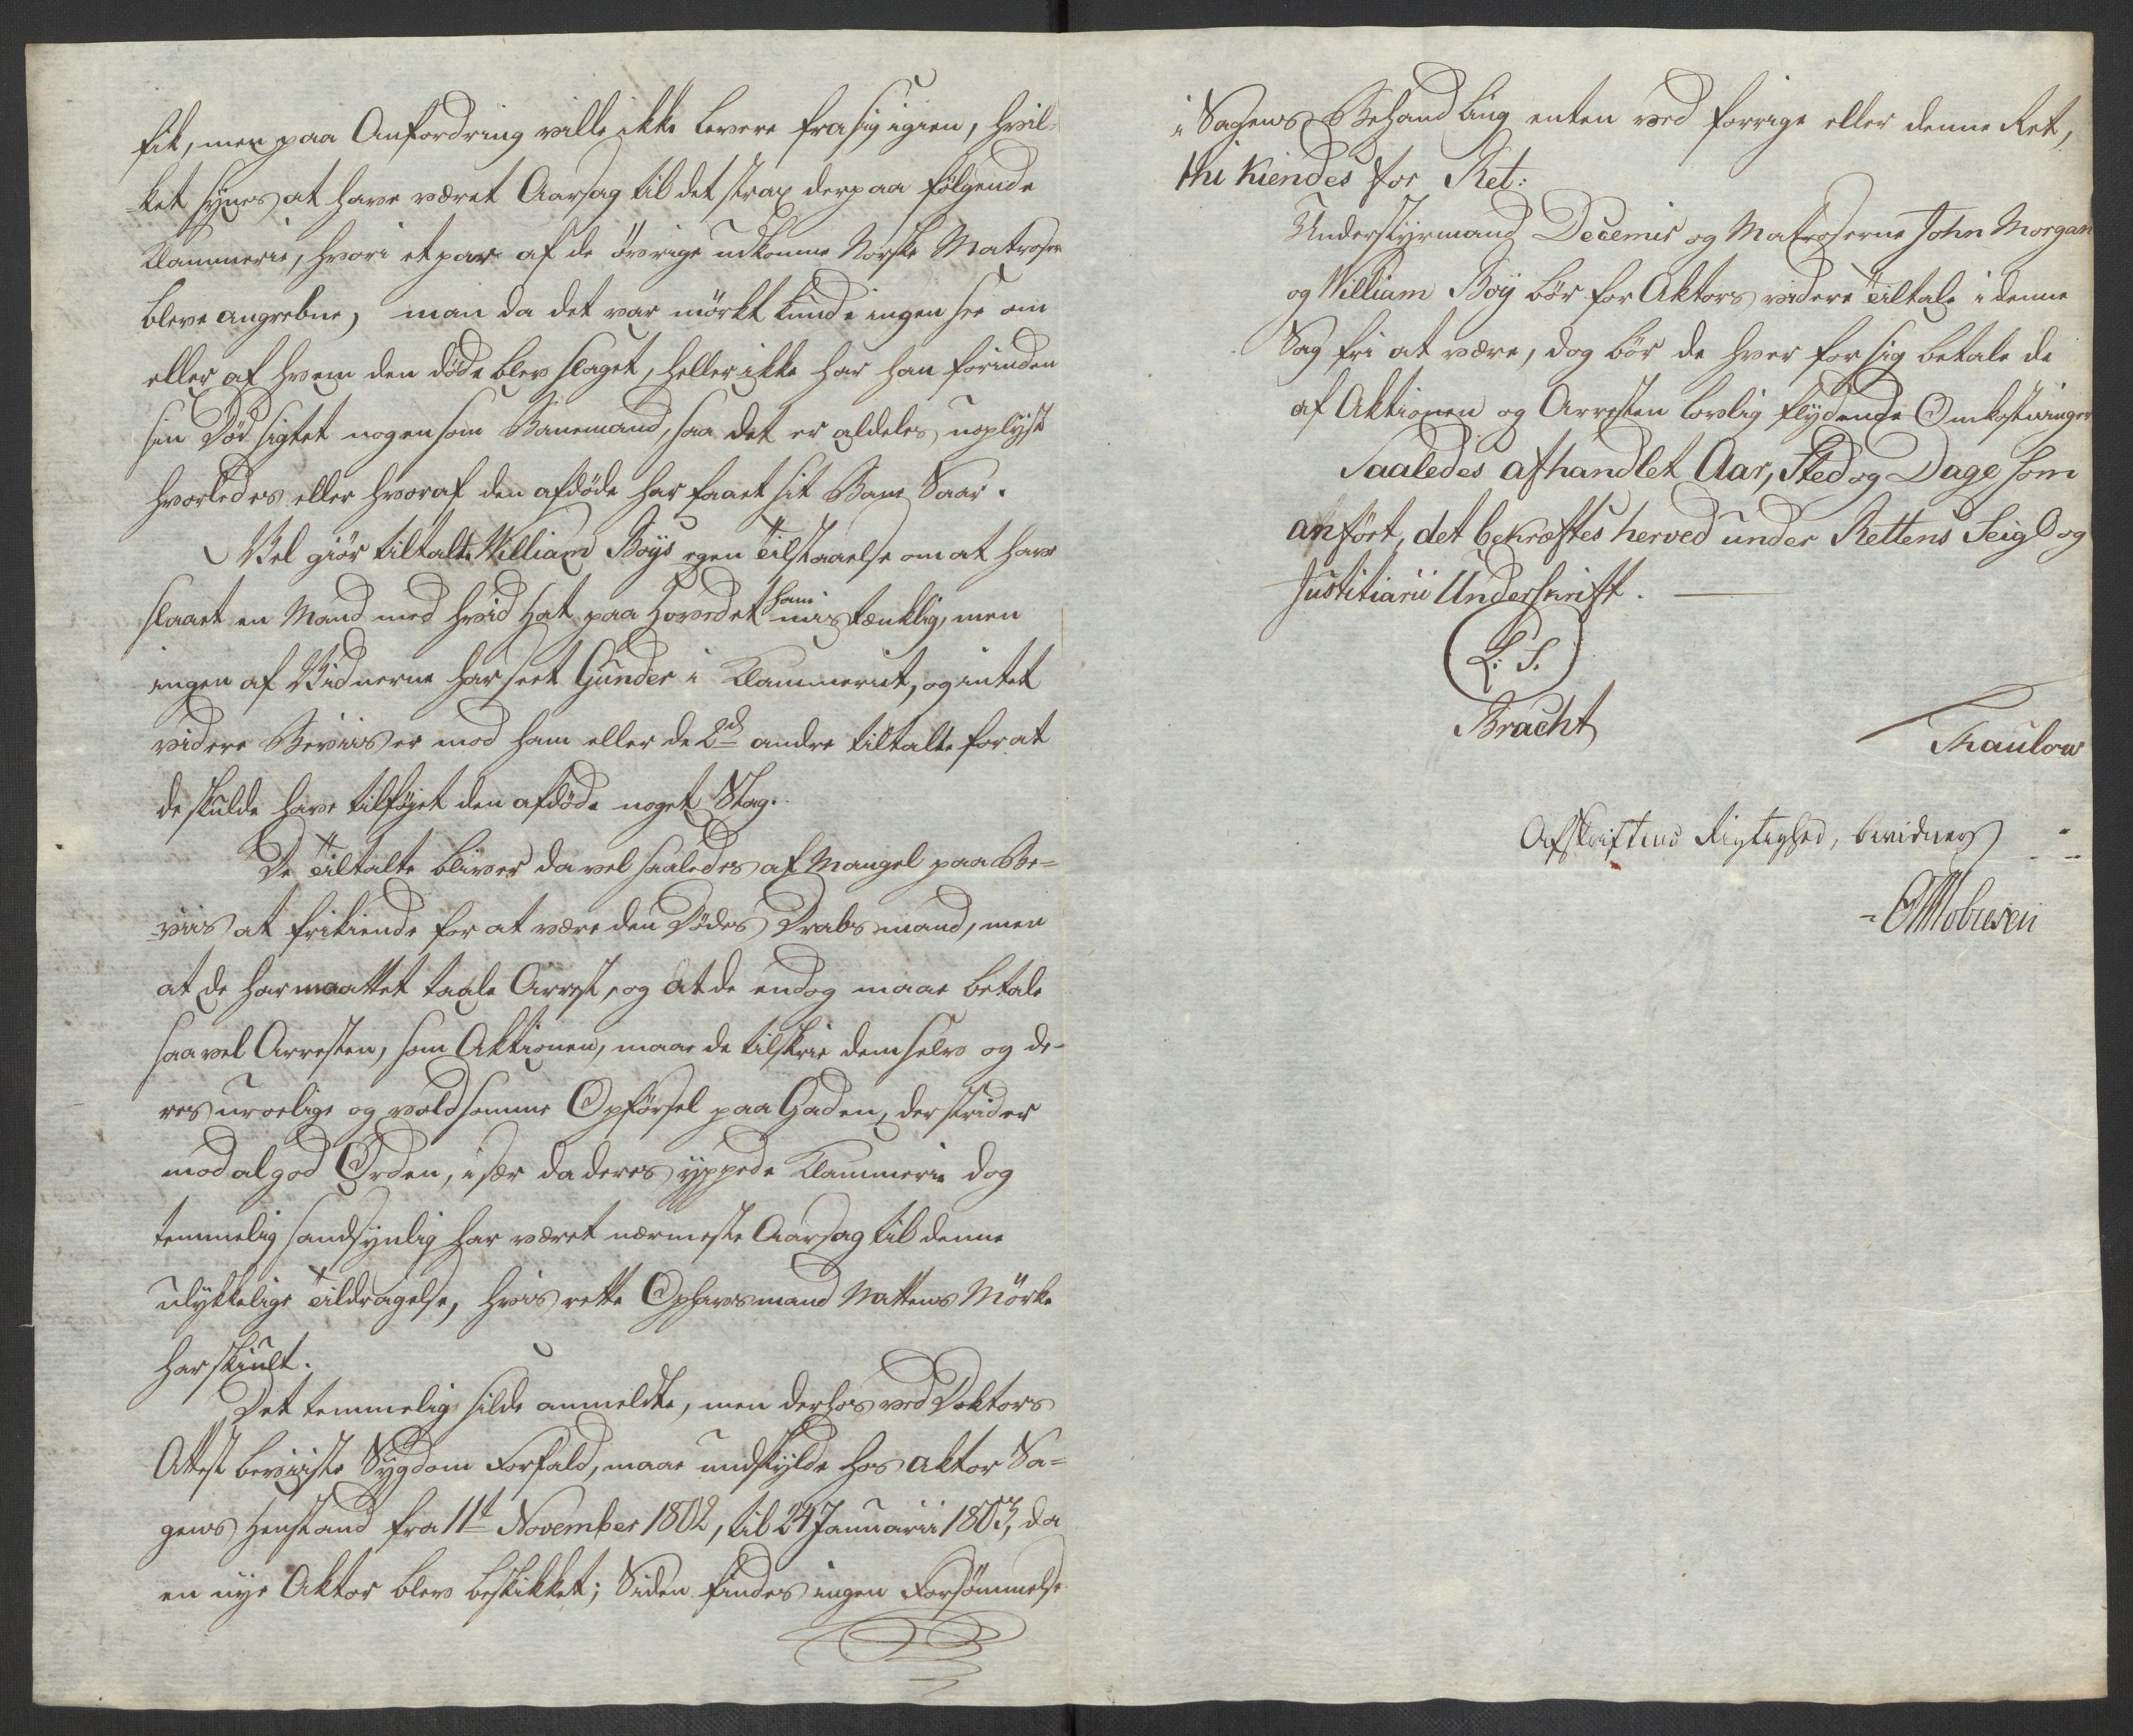 fik, men paa Anfordring ville ikke levere fra sig igien, hvil-
ket synes at have været Aarsag til det strax derpaa fölgende
Klammerie, hvori et par af de övrige udkomne Norske Matroser
bleve angrebne, men da det var mörkt kunde ingen see om
eller af hvem den döde blev slaget, heller ikke har han forinden
sin Död sigtet nogen som Banemand, saa det er aldeles uoplyst
hvorledes eller hvoraf den afdöde har faaet sit Bane Saar.
Vel giör tiltalte William Boys egen Tilstaaelse om at have
slaaet en Mand med hvid Hat paa Hovedet ham mistænklig, men
ingen af Vidnerne har seet Gunder i Klammeriet, og intet
videre Beviis er mod ham eller de 2de andre tiltalte for at
de skulde have tilföjet den afdöde noget Slag.
De Tiltalte bliver da vel saaledes af Mangel paa Be=
viis at frikiende for at være den Dödes Drabsmand, men
at de har maattet taale Arrest, og at de endog maae betale
saavel Arresten, som Aktionen, maae de tilskrive dem selv og de-
res uroelige og voldsomme Opförsel paa Gaden, der strider
mod al god Orden, især da deres yppede Klammerie dog
temmelig sandsynlig har været nærmeste Aarsag til denne
ulykkelige Tildragelse, hvis rette Ophavsmand Nattens Mörke
har skiult.
Det temmelig silde anmeldte, men derhos ved Doktors
Attest beviiste Sygdom Forfald, maae undskylde hos Aktor Sa=
gens Henstand fra 11t November 1802, til 24 Januarii 1803, da
en nye Aktor blev beskikket; Siden findes ingen Forsömmelse
i Sagens Behandling enten ved forrige eller denne Ret,
thi kiendes for Ret:
Understyrmand Decemis og Matroserne John Morgan
og William Boy bör for Aktors videre Tiltale i denne
Sag fri at være, dog bör de hver for sig betale de
af Aktionen og Arresten lovlig flydende Omkostninger
Saaledes afhandlet Aar, Sted og Dage som
anfört, det bekræftes herved under Rettens Seigl og
Justitiarii Underskrift.
L. S.
Bracht
Thaulow
Afskriftens Rigtighed, bevidnes